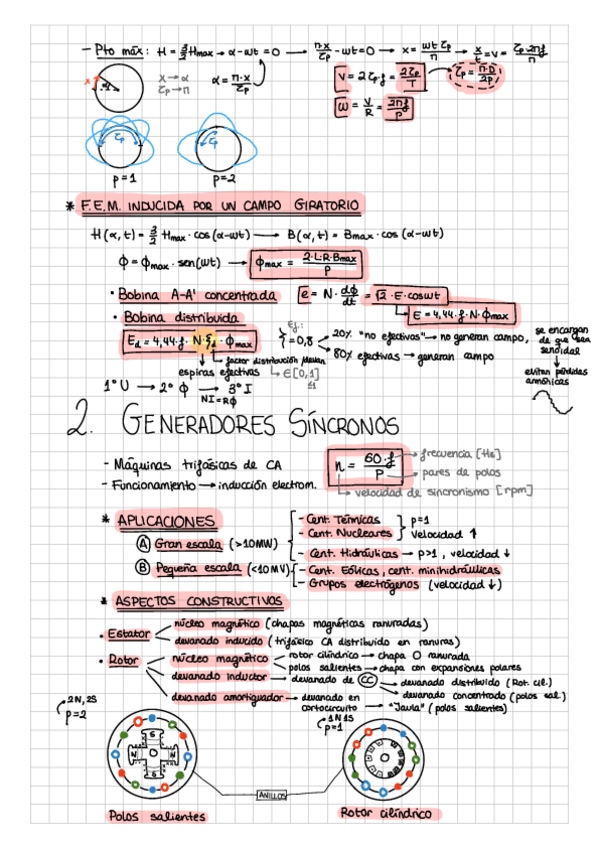 - Pto máx: H = 3/2 Hmax → α-wt = 0 → π·x/τp - wt = 0 → x = wt τp/π → x/t = v = τp·2πf/π
x → α
τp → π
α = π·x/τp
v = 2τp·f = 2τp/T
τp = π·D/2p
ω = v/R = 2πf/P
x
α
τp
τp
p=1
p=2
* F.E.M. INDUCIDA POR UN CAMPO GIRATORIO
H(α,t) = 3/2 Hmax·cos(α-wt) → B(α,t) = Bmax·cos(α-wt)
ɸ = ɸmax·sen(wt) → ɸmax = 2·L·R·Bmax/P
• Bobina A-A' concentrada
e = N·dɸ/dt = √2·E·coswt
E = 4,44·f·N·ɸmax
• Bobina distribuida
Ed = 4,44·f·N·ξd·ɸmax
factor distribución/devan
espiras efectivas
∈[0,1]
Ej.:
ξ=0,8
20% "no efectivas" → no generan campo,
80% efectivas → generan campo
se encargan
de que sea
senoidal
evitan pérdidas
armónicas
1° U → 2° ɸ → 3° I
NI=Rɸ
2. GENERADORES SÍNCRONOS
- Máquinas trifásicas de CA
- Funcionamiento → inducción electrom.
n = 60·f/P
frecuencia [Hz]
pares de polos
velocidad de sincronismo [rpm]
* APLICACIONES
A Gran escala (>10MW)
- Cent. Térmicas
- Cent. Nucleares
p=1
velocidad ↑
- Cent. Hidráulicas → p>1, velocidad ↓
B Pequeña escala (<10MV)
- Cent. Eólicas, cent. minihidráulicas
- Grupos electrógenos (velocidad ↓)
* ASPECTOS CONSTRUCTIVOS
• Estator
núcleo magnético (chapas magnéticas ranuradas)
devanado inducido (trifásico CA distribuido en ranuras)
• Rotor
núcleo magnético
rotor cilíndrico → chapa O ranurada
polos salientes → chapa con expansiones polares
devanado inductor → devanado de CC
devanado distribuido (Rot. cil.)
devanado concentrado (polos sal.)
devanado amortiguador → devanado en
cortocircuito → "Jaula" (polos salientes)
2N, 2S
p=2
1N 1S
p=1
S
N
N
S
ANILLOS
Polos salientes
Rotor cilíndrico